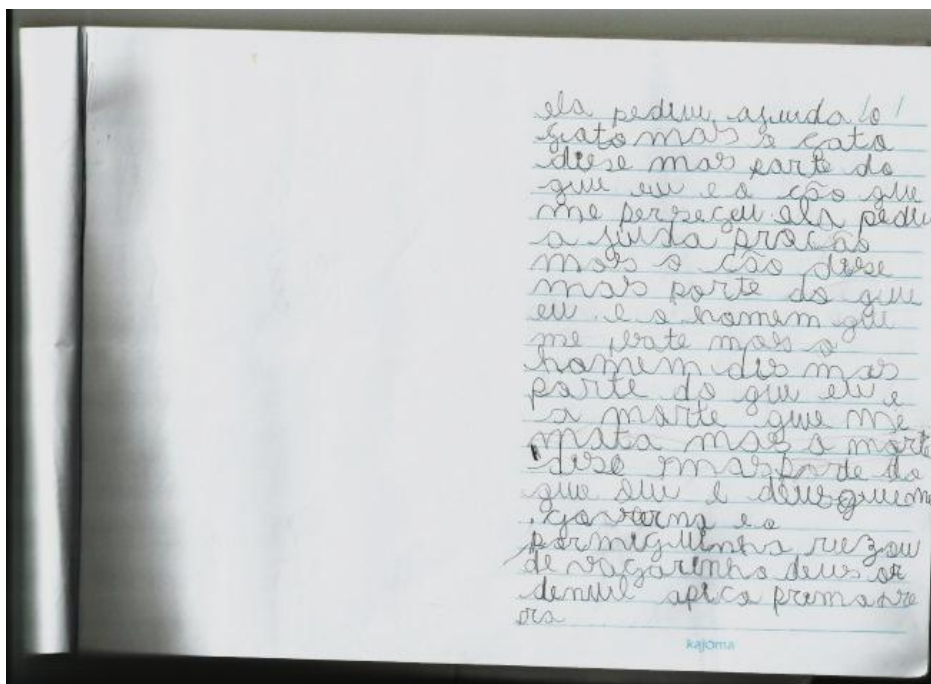 ela pediu ajuda lo
gato mas o gato
dise mas parte do
que eu e o cão que
me persegeu ela pediu
a juida pracão
mais o cão dise
mais porte do que
eu e o homem que
me bate mais o
homem dis mas
parte do que eu e
a morte que me
mata mas a morte
dise masporde do
que eu e deus quem
governa e o
parmiguinha rezou
de vagarinho deus or
deniul apica prima ve
ra
kajoma